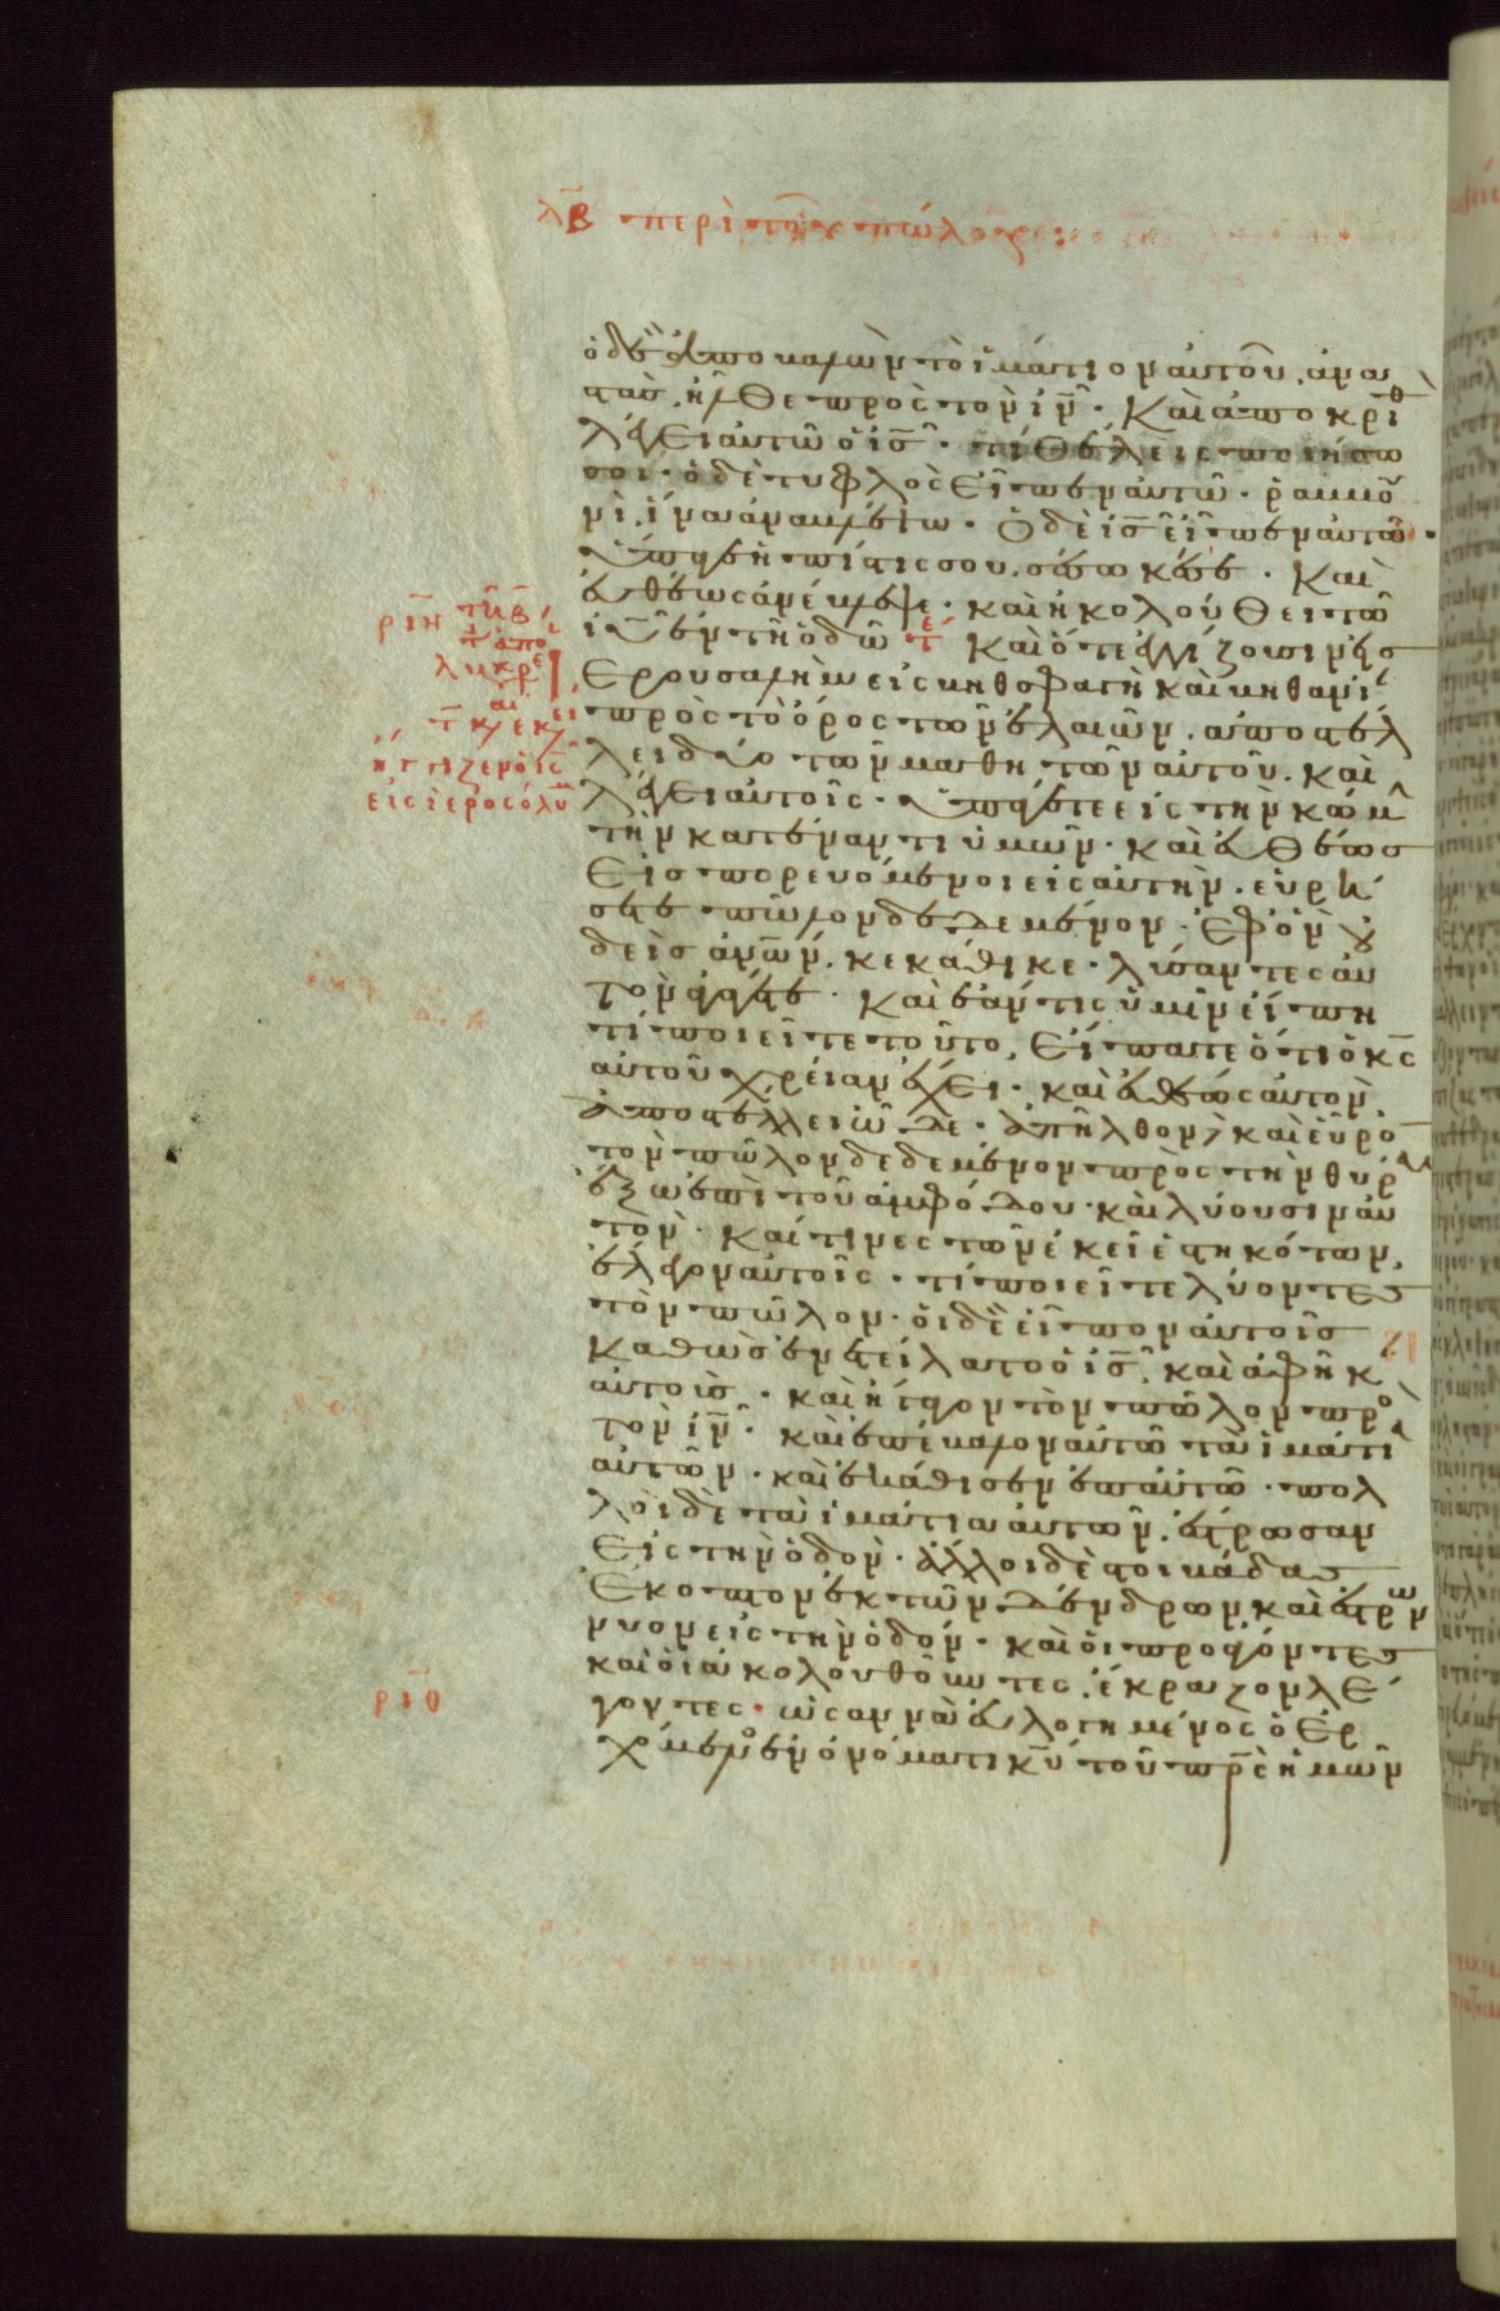 λβ περὶ τοῦ πώλου:
ὁ δὲ ἀποβαλὼν τὸ ἱμάτιον αὐτοῦ, ἀνα
στὰς, ἦλθε πρὸς τὸν ιν̄. Καὶ ἀποκριθ
λέγει αὐτῶ ὁ ις̄. τί θέλεις ποιήσω
σοι. ὁ δὲ τυφλὸς εἶπεν αὐτῶ. ραββου
νὶ, ἵνα ἀναβλέψω. Ὁ δὲ ις̄ εἶπεν αὐτῶ.
ὕπαγε ἡ πίστις σου, σέσωκέ σε. Καὶ
εὐθέως ἀνέβλεψε. καὶ ἠκολούθει τῶ
ιῡ ἐν τῆ ὁδῶ τε Καὶ ὅτε ἐγγίζουσιν εἰσ
Ιερουσαλὴμ εἰς βηθσφαγὴ καὶ βηθανί
πρὸς τὸ ὄρος τῶν ἐλαιῶν, ἀποστέλ
λει δύο τῶν μαθητῶν αὐτοῦ. καὶ
λέγει αὐτοῖς. ὑπάγετε εἰς τὴν κώμ
τὴν κατέναντι ὑμῶν. καὶ εὐθέωσ
εἰσπορευόμενοι εἰς αὐτὴν. εὑρή
σετε πῶλον δεδεμένον. ἐφ ὃν οὐ
δεὶσ ἀνων̄, κεκάθικε. λύσαντες αὐ
τὸν ἀγάγετε. καὶ ἐάν τις ὑμῖν εἴπη
τί ποιεῖτε τοῦτο, εἴπατε ὅτι ὁ κς̄
αὐτοῦ χρείαν ἔχει. καὶ εὐθέως αὐτὸν
ἀποστέλλει ὧδε. ἀπῆλθον καὶ εὗρο
τὸν πῶλον δεδεμένον πρὸς τὴν θύρ
ἔξω ἐπὶ τοῦ ἀμφόδου. καὶ λύουσιν αὐ
τὸν. καί τινες τῶν ἐκεῖ ἑστηκότων,
ἔλεγον αὐτοῖς. τί ποιεῖτε λύοντεσ
τὸν πῶλον. οἱ δὲ εἶπον αὐτοῖσ
καθὼσ ἐνετείλατο ὁ ις̄. καὶ ἀφῆκ
αὐτοὺσ. καὶ ἤγαγον τὸν πῶλον πρὸ
τὸν ιν̄. καὶ ἐπέβαλον αὐτῶ τὰ ἱμάτια
αὐτῶν. καὶ ἐκάθισεν ἐπ αὐτῶ. πολ
λοὶ δὲ τὰ ἱμάτια αὐτῶν, ἔστρωσαν
εἰς τὴν ὁδὸν. ἄλλοι δὲ στοιβάδασ
ἔκοπτον ἐκ τῶν δένδρων, καὶ ἐστρών
νυον εἰς τὴν ὁδόν. καὶ οἱ προάγοντεσ
καὶ οἱ ἀκολουθοῦντες, ἔκραζον λέ
γοντες. ὡσαννὰ εὐλογημένος ὁ ἐρ
χόμενος ἐν ὀνόματι κῡ τοῦ πρ̄ς ἡμῶν
ριη
εἰς ἱεροσόλυ
ριθ